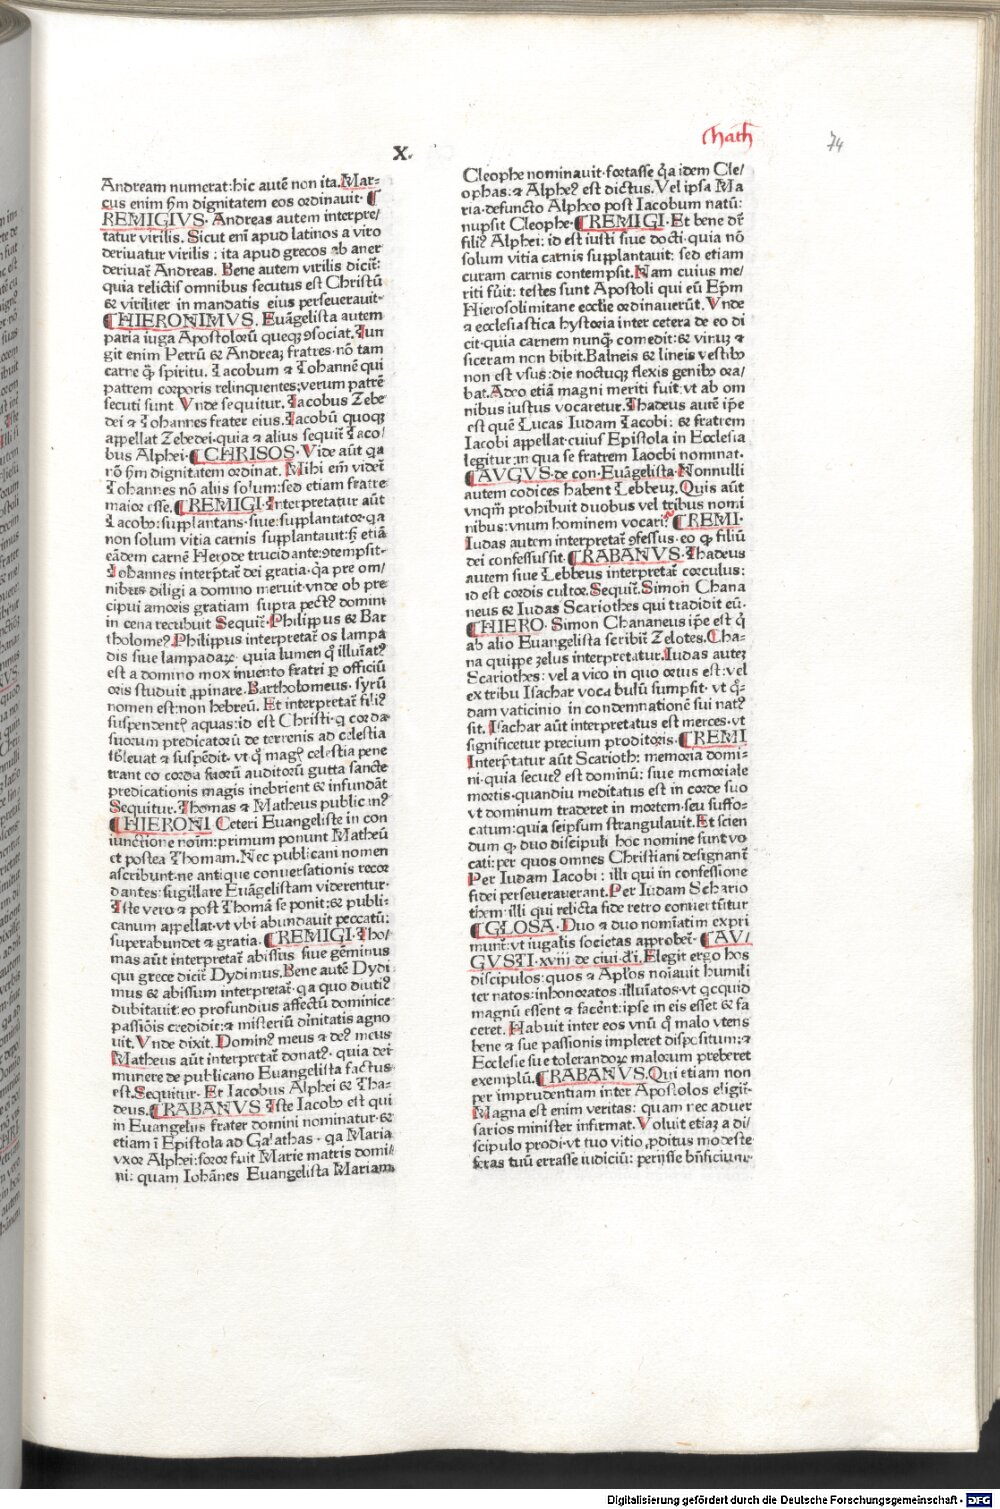 X.
Math
74
Andream numerat: hic autē non ita. Mar-
cus enim ẜm dignitatem eos ordinauit. ¶
REMIGIVS. Andreas autem interpre/
tatur virilis. Sicut eni apud latinos a viro
deriuatur virilis: ita apud grecos ab aner
deriuat̄ Andreas. Bene autem virilis dicit̄:
quia relictis omnibus secutus est Christū
& viriliter in mandatis eius perseuerauit.
¶HIERONIMVS. Euāgelista autem
paria iuga Apostolorū queqꝫ ꝯsociat. Iun
git enim Petrū & Andreaꝫ fratres. nō tam
carne q̄ꝫ spiritu. Iacobum & Iohannē qui
patrem corporis relinquentes; verum patrē
secuti sunt Vnde sequitur. Iacobus Zebe
dei & Iohannes frater eius. Iacobū quoqꝫ
appellat Zebedei. quia & alius sequit̄ Iaco/
bus Alphei. ¶CHRISOS. Vide aūt qa
rō ẜm dignitatem ordinat. Mihi em videt̄
Iohannes nō aliis solum: sed etiam fratre
maior esse. ¶REMIGI. Interpretatur aūt
Iacob: supplantans. siue: supplantator. qa
non solum vitia carnis supplantauit: ẜ etiā
eādem carnē Herode trucidante: ꝯtempsit.
Iohannes interp̄tat̄ dei gratia. q̄a pre om/
nibus diligi a domino meruit. vnde ob pre
cipui amoris gratiam supra pectꝰ domini
in cena recubuit Sequit̄. Philippus & Bar
tholomeꝰ. Philippus interpretat̄ os lampa
dis siue lampadaꝝ. quia lumen q̊ illuīatꝰ
est a domino mox inuento fratri ꝑ officiū
oris studuit ꝓpinare. Bartholomeus. syrū
nomen est: non hebreū. Et interpretat̄ filiꝰ
suspendentꝭ aquas: id est Christi. q corda
suorum predicatorū de terrenis ad celestia
sbleuat & suspēdit. vt q̊ magꝭ celestia pene
trant eo corda suorū auditorū gutta sancte
predicationis magis inebrient & infundāt
Sequitur. Thomas & Matheus publicanꝰ
¶HIERONI Ceteri Euangeliste in con
iunctione noīm: primum ponunt Matheū
et postea Thomam. Nec publicani nomen
ascribunt. ne antique conuersationis recor
dantes: sugillare Euāgelistam viderentur.
Iste vero & post Thomā se ponit: & publi-
canum appellat. vt vbi abundauit peccatū:
superabundet & gratia. ¶REMIGI. Tho/
mas aūt interpretat̄ abissus siue gēminus
qui grece dicit̄ Dydimus. Bene autē Dydi
mus & abissum interpretat̄. qa quo diutiꝰ
dubitauit: eo profundius affectū dominice
passiōis credidit: & misteriū diuinitatis agno
uit. Vnde dixit. Dominꝰ meus & deꝰ meus
Matheus aūt interpretat̄ donatꝰ. quia dei
munere de publicano Euangelista factus
est. Sequitur. Et Iacobus Alphei & Tha-
deus. ¶RABANVS Iste Iacob est qui
in Euangeliis frater domini nominatur. &
etiam ī Epistola ad Galathas. qa Maria
vxor Alphei: soror fuit Marie matris domi/
ni: quam Iohānes Euangelista Mariam
Cleophe nominauit. fortasse q̄a idem Cle/
ophas: & Alpheꝰ est dictus. Vel ipsa Ma
ria. defuncto Alpheo post Iacobum natū:
nupsit Cleophe. ¶REMIGI. Et bene dr̄
filiꝰ Alphei: id est iusti siue docti. quia nō
solum vitia carnis supplantauit: sed etiam
curam carnis contempsit. Nam cuius me/
riti fuit: testes sunt Apostoli qui eū Ep̄m
Hierosolimitane ecclīe ordinauerūt. Vnde
& ecclesiastica hystoria inter cetera de eo di
cit. quia carnem nunq̄ꝫ comedit: & vinuꝫ &
siceram non bibit. Balneis & lineis vestibꝰ
non est vsus: die noctuqꝫ flexis genibꝰ ora/
bat. Adeo etiā magni meriti fuit: vt ab om
nibus iustus vocaretur. Thadeus autē ip̄e
est quē Lucas Iudam Iacobi: & fratrem
Iacobi appellat. cuius Epistola in Ecclesia
legitur: in qua se fratrem Iaochi nominat.
¶AVGVS. de con. Euāgelista. Nonnulli
autem codices habent Lebbeuꝫ. Quis aūt
vnqm̄ prohibuit duobus vel tribus nomi
nibus: vnum hominem vocari? ¶REMI.
Iudas autem interpretat̄ ꝯfessus. eo ꝙ filiū
dei confessus sit. ¶RABANVS. Thadeus
autem siue Lebbeus interpretat̄ corculus:
id est cordis cultor. Sequit̄. Simon Chana
neus & Iudas Scariothes qui tradidit eū.
¶HIERO. Simon Chananeus ip̄e est q̊
ab alio Euangelista scribit̄ Zelotes. Cha-
na quippe zelus interpretatur. Iudas auteꝫ
Scariothes: vel a vico in quo ortus est: vel
ex tribu Isachar vocabulū sumpsit. vt q̊-
dam vaticinio in condemnationē sui natꝰ
sit. Isachar aūt interpretatus est merces. vt
significetur precium proditoris. ¶REMI
Interp̄tatur aūt Scarioth: memoria domi-
ni. quia secutꝰ est dominū: siue memoriale
mortis. quandiu meditatus est in corde suo
vt dominum traderet in mortem. seu suffo-
catum: quia seipsum strangulauit. Et scien
dum ꝙ duo discipuli hoc nomine sunt vo
cati: per quos omnes Christiani designant̄
Per Iudam Iacobi: illi qui in confessione
fidei perseuerauerant. Per Iudam Schario
them: illi qui relicta fide retro conuertūtur
¶GLOSA. Duo & duo nomīatim expri
munt̄: vt iugalis societas approbet̄. ¶AV/
GVSTI. xviij de ciui. dī. Elegit ergo hos
discipulos: quos & Aplos noīauit humili
ter natos: inhonoratos: illuīatos. vt qcquid
magnū essent & facerēt: ipse in eis esset & fa
ceret. Habuit inter eos vnū q̊ malo vtens
bene & sue passionis impleret dispositum: &
Ecclesie sue tolerandoꝝ malorum preberet
exemplū. ¶RABANVS. Qui etiam non
per imprudentiam inter Apostolos eligit̄.
Magna est enim veritas: quam nec aduer
sarios minister infirmat. Voluit etiaꝫ a di/
scipulo prodi. vt tuo vitio ꝓditus modeste
feras tuū errasse iudiciū: perijsse bn̄ficium.
Digitalisierung gefördert durch die Deutsche Forschungsgemeinschaft - DFG